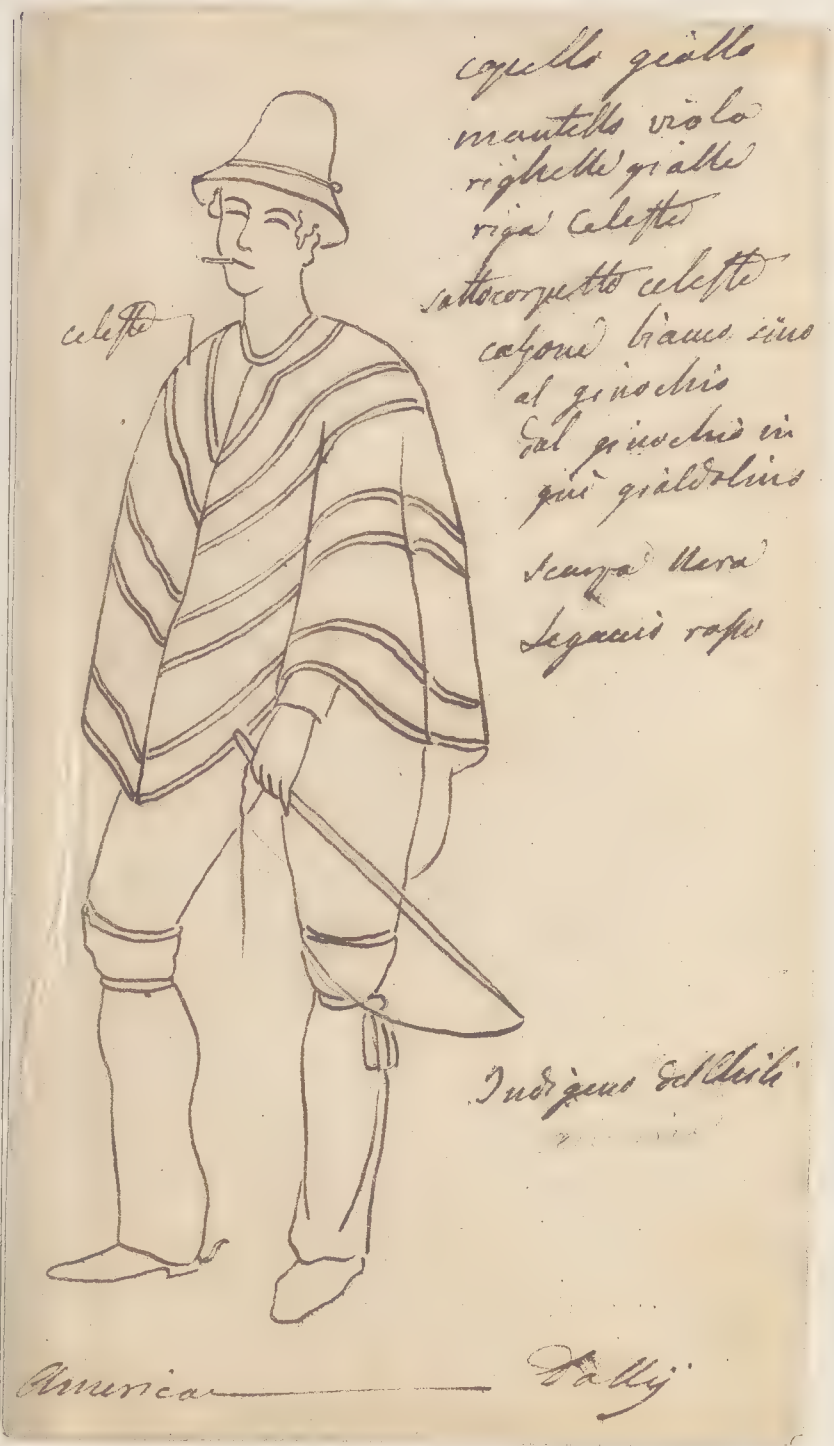 capello giallo
mantello viola
righette gialle
riga celeste
celeste
sottocorpetto celeste
calzone bianco sino
al ginochio
dal ginochio in
giù gialdolino
scarpa nera
Legacci rosso
Indigeno del Chili
America